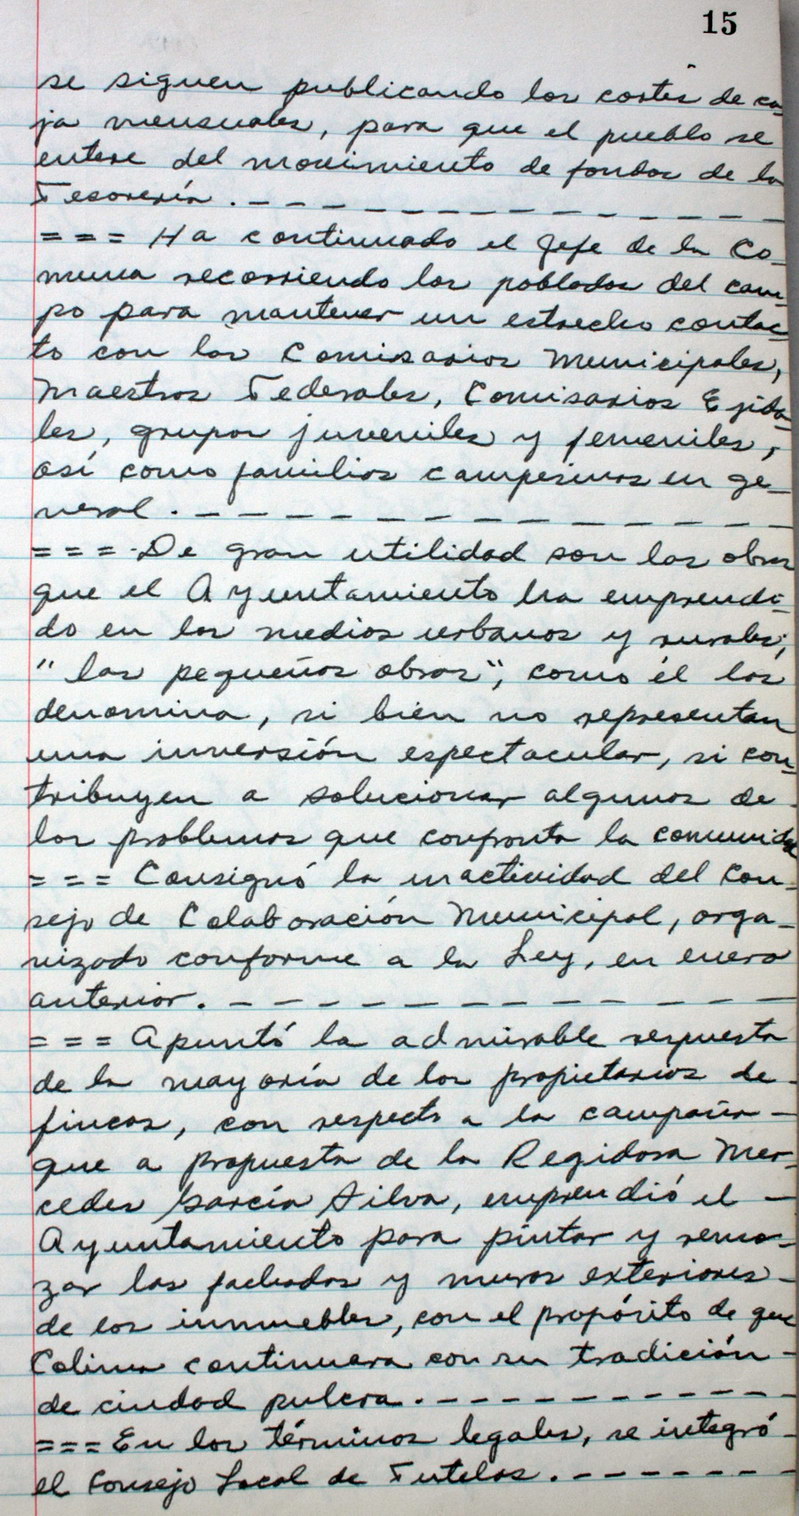 15
se siguen publicando los cortes de ca-
ja mensuales, para que el pueblo se
entere del movimiento de fondos de la
Tesorería . - - - - - - - - - - - - -
= = = Ha continuado el Jefe de la Co-
muna recorriendo los poblados del cam-
po para mantener un estrecho contac-
to con los Comisarios Municipales,
Maestros Federales, Comisarios Ejida-
les, grupos juveniles y femeniles,
así como familias campesinas en ge-
neral . - - - - - - - - - - - - - - -
= = = De gran utilidad son las obras
que el Ayuntamiento ha emprendi-
do en los medios urbanos y rurales;
"las pequeñas obras", como él las
denomina, si bien no representan
una inversión espectacular, si con-
tribuyen a solucionar algunos de -
los problemas que confronta la comunidad
= = = Consignó la inactividad del Con-
sejo de Colaboración Municipal, orga-
nizado conforme a la Ley, en enero
anterior. - - - - - - - - - - - - - -
= = = Apuntó la admirable respuesta
de la mayoría de los propietarios de -
fincas, con respecto a la campaña -
que a propuesta de la Regidora Mer-
cedes García Silva, emprendió el -
Ayuntamiento para pintar y remo-
zar las fachadas y muros exteriores -
de los inmuebles, con el propósito de que
Colima continuara con su tradición -
de ciudad pulcra . - - - - - - - - - - -
= = = En los términos legales, se integró -
el Consejo Local de Tutelas . - - - - - -